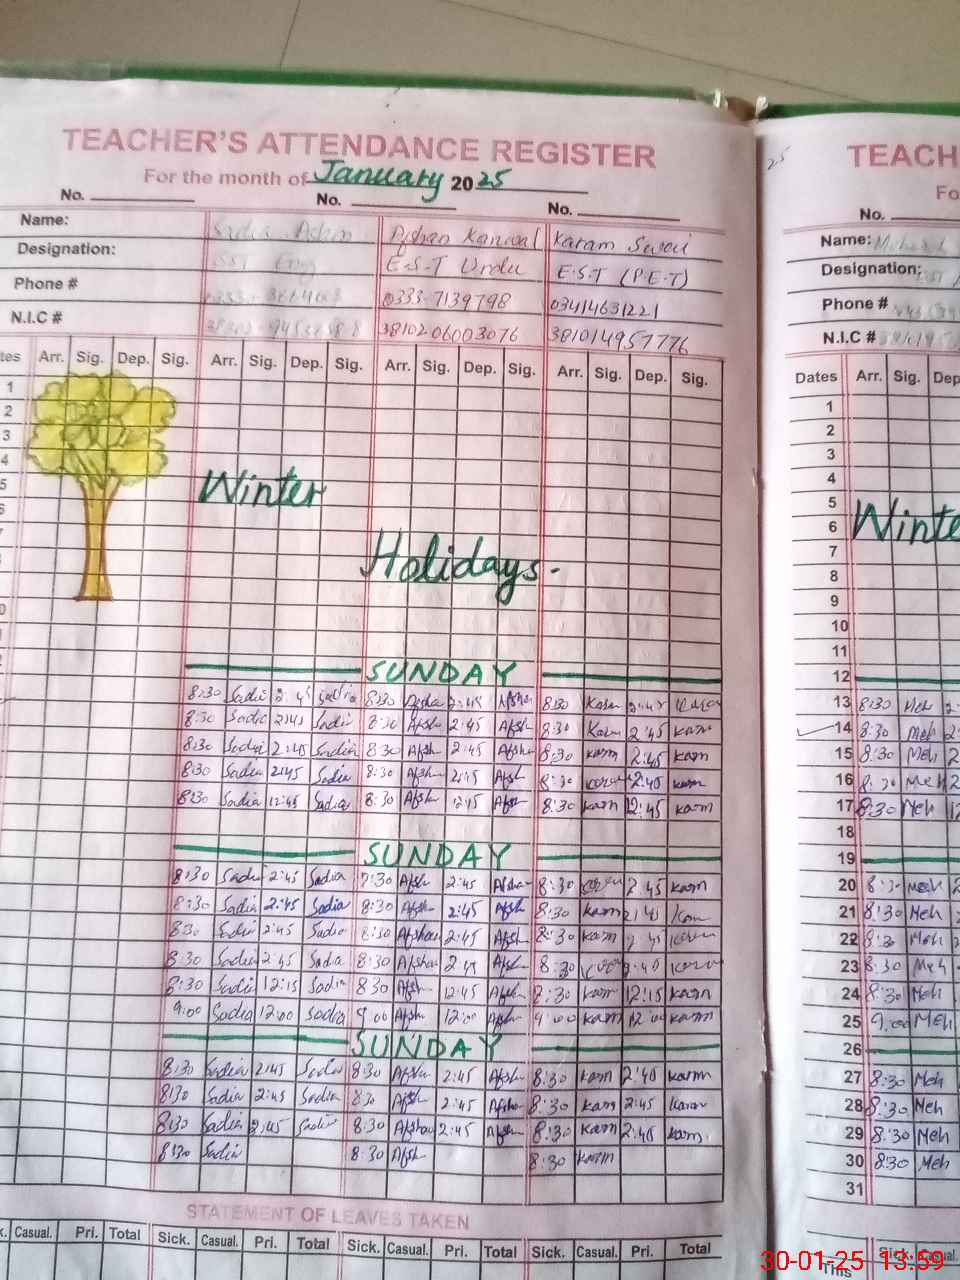 TEACHER'S ATTENDANCE REGISTER
For the month of January 2025
No. No. No.
Name: Sadia Aslam Afshan Kanwal Karam
Designation: SST E.S.T Urdu E.S.T (P.E.T)
Phone # 0333-7139798 03414631221
N.I.C # 3810206003076 381014957776
tes Arr. Sig. Dep. Sig. Arr. Sig. Dep. Sig. Arr. Sig. Dep. Sig. Arr. Sig. Dep. Sig.
1
2
3
4
5
Winter
Holidays.
SUNDAY
8:30 Sadia 2:45 Sadia 8:30 2:45 Afsha 8:30 Karm 2:45
8:30 Sadia 2:45 Sadia 8:30 Afsh 2:45 Afsh 8:30 Karm 2:45 karm
8:30 Sadia 2:45 Sadia 8:30 Afsh 2:45 Afsha 8:30 karm 2:45 karm
8:30 Sadia 2:45 Sadia 8:30 Afsha 2:45 Afsh 8:30 2:45 karm
8:30 Sadia 12:45 Sadia 8:30 Afsh 12:45 Afsh 8:30 karm 12:45 karm
SUNDAY
8:30 Sadia 2:45 Sadia 7:30 Afsh 2:45 Afshan 8:30 2:45 karm
8:30 Sadia 2:45 Sadia 8:30 Afsh 2:45 Afsh 8:30 karm 2:45 karm
830 Sadia 2:45 Sadia 8:30 Afshan 2:45 Afsh 8:30 karm 2 45
8:30 Sadia 2:45 Sadia 8:30 Afshan 2:45 Afsh 8:30 2:45
8:30 Sadia 12:15 Sadia 830 Afsh 12:45 Afsh 8:30 karm 12:15 karm
9:00 Sadia 12:00 Sadia 9:00 Afsh 12:00 Afsh 9:00 karm 12:00 karm
SUNDAY
8:30 Sadia 2:45 Sadia 8:30 Afsh 2:45 Afsh 8:30 karm 2:45 karm
8:30 Sadia 2:45 Sadia 8:30 Afsh 2:45 Afsha 8:30 kam 2:45
8:30 Sadia 2:45 Sadia 8:30 Afshan 2:45 Afsh 8:30 karm 2:45 karm
8:30 Sadia 8:30 Afsh 8:30 karm
STATEMENT OF LEAVES TAKEN
Casual. Pri. Total Sick. Casual. Pri. Total Sick. Casual. Pri. Total Sick. Casual. Pri. Total
25
TEACH
Fo
No.
Name:
Designation:
Phone #
N.I.C #
Dates Arr. Sig. Dep
1
2
3
4
5
6
Winte
7
8
9
10
11
12
13 8:30 Meh 2
14 8:30 Meh 2
15 8:30 Meh 2
16 8:30 Meh 2
17 8:30 Meh 12
18
19
20 8:30 Meh 2
21 8:30 Meh
22 8:30 Meh
23 8:30 Meh
24 8:30 Meh
25 9:00 Meh
26
27 8:30 Meh
28 8:30 Meh
29 8:30 Meh
30 830 Meh
31
Sick. Casual.
This
30-01-25 13:59